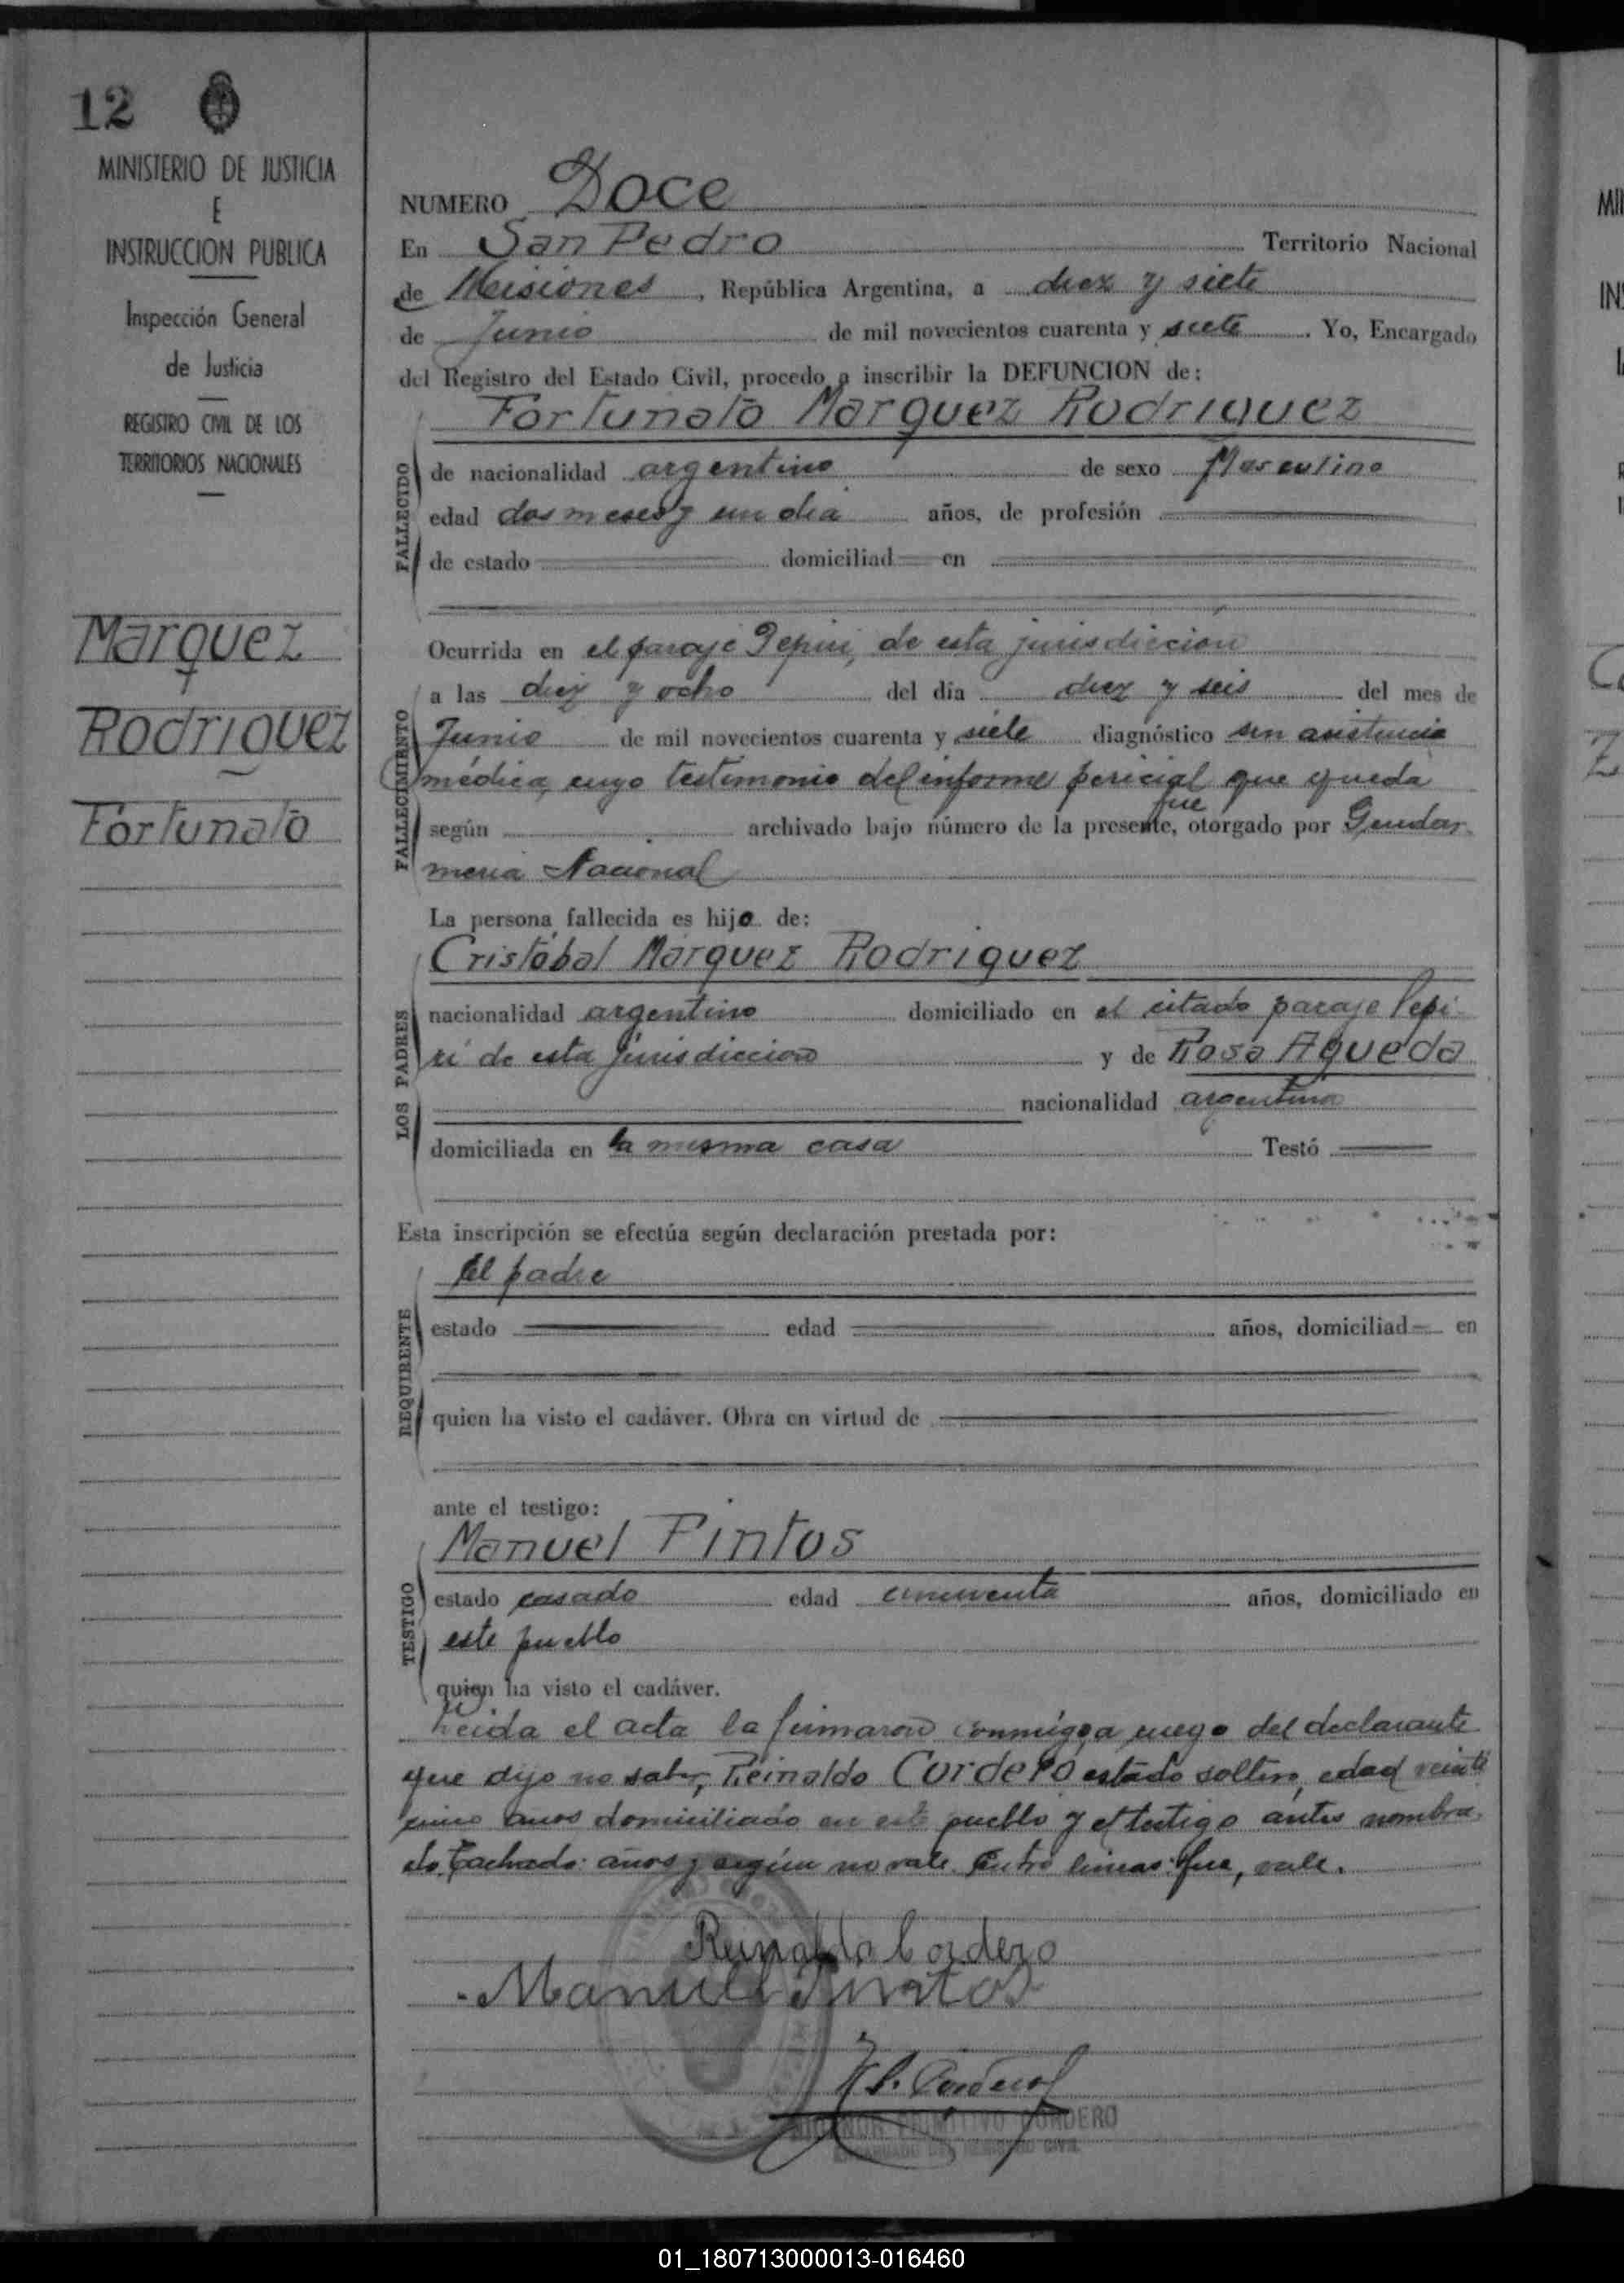 12
MINISTERIO DE JUSTICIA
E
INSTRUCCION PUBLICA
Inspección General
de Justicia
REGISTRO CIVIL DE LOS
TERRITORIOS NACIONALES
Marquez
Rodriguez
Fortunato
NUMERO Doce
En San Pedro Territorio Nacional
de Misiones, República Argentina, a diez y siete
de Junio de mil novecientos cuarenta y siete. Yo, Encargado
del Registro del Estado Civil, procedo a inscribir la DEFUNCION de:
Fortunato Marquez Rodriguez
FALLECIDO
de nacionalidad argentino de sexo Masculino
edad dos meses y un dia años, de profesión
de estado domiciliad en
FALLECIMIENTO
Ocurrida en el paraje Pepiri, de esta jurisdiccion
a las diez y ocho del día diez y seis del mes de
Junio de mil novecientos cuarenta y siete diagnóstico sin asistencia
médica, cuyo testimonio del informe pericial que queda
fue
según archivado bajo número de la presente, otorgado por Gendar-
meria Nacional
La persona fallecida es hijo de:
LOS PADRES
Cristóbal Marquez Rodriguez
nacionalidad argentino domiciliado en el citado paraje Pepi-
ri de esta jurisdiccion y de Rosa Agueda
nacionalidad argentina
domiciliada en la misma casa Testó
Esta inscripción se efectúa según declaración prestada por:
REQUIRENTE
El padre
estado edad años, domiciliad en
quien ha visto el cadáver. Obra en virtud de
ante el testigo:
TESTIGO
Manuel Pintos
estado casado edad cincuenta años, domiciliado en
este pueblo
quien ha visto el cadáver.
Leida el acta la firmaron conmigo, a ruego del declarante
que dijo no saber, Reinaldo Cordero estado soltero, edad veinti
cinco años domiciliado en este pueblo y el testigo antes nombra-
do. Tachado: años y según no vale. Entre lineas: fue, vale.
Reinaldo Cordero
Manuel Pintos
PRIMITIVO CORDERO
ENCARGADO DEL REGISTRO CIVIL
01_180713000013-016460